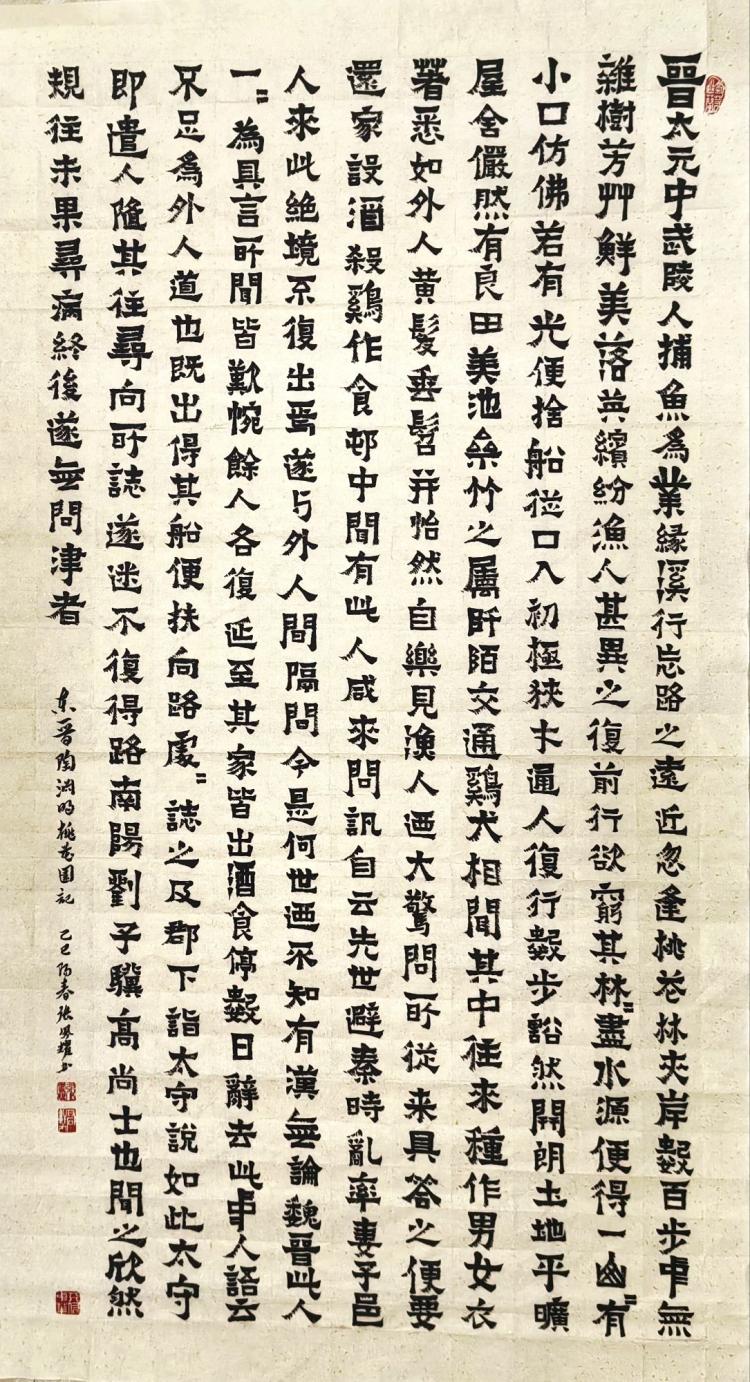 晉太元中武陵人捕魚為業緣溪行忘路之遠近忽逢桃花林夾岸數百步中無
雜樹芳艸鮮美落英繽紛漁人甚異之復前行欲窮其林〻盡水源便得一山〻有
小口仿佛若有光便捨船從口入初極狹才通人復行數步豁然開朗土地平曠
屋舍儼然有良田美池桑竹之屬阡陌交通鷄犬相聞其中往來種作男女衣
著悉如外人黃髮垂髫并怡然自樂見漁人迺大驚問所從來具答之便要
還家設酒殺鷄作食邨中聞有此人咸來問訊自云先世避秦時亂率妻子邑
人來此絕境不復出焉遂与外人間隔問今是何世迺不知有漢無論魏晉此人
一〻為具言所聞皆歎惋餘人各復延至其家皆出酒食停數日辭去此中人語云
不足為外人道也既出得其船便扶向路處〻誌之及郡下詣太守說如此太守
即遣人隨其往尋向所誌遂迷不復得路南陽劉子驥高尚士也聞之欣然
規往未果尋病終後遂無問津者
东晉陶淵明桃花園記 乙巳陽春張鳳耀书